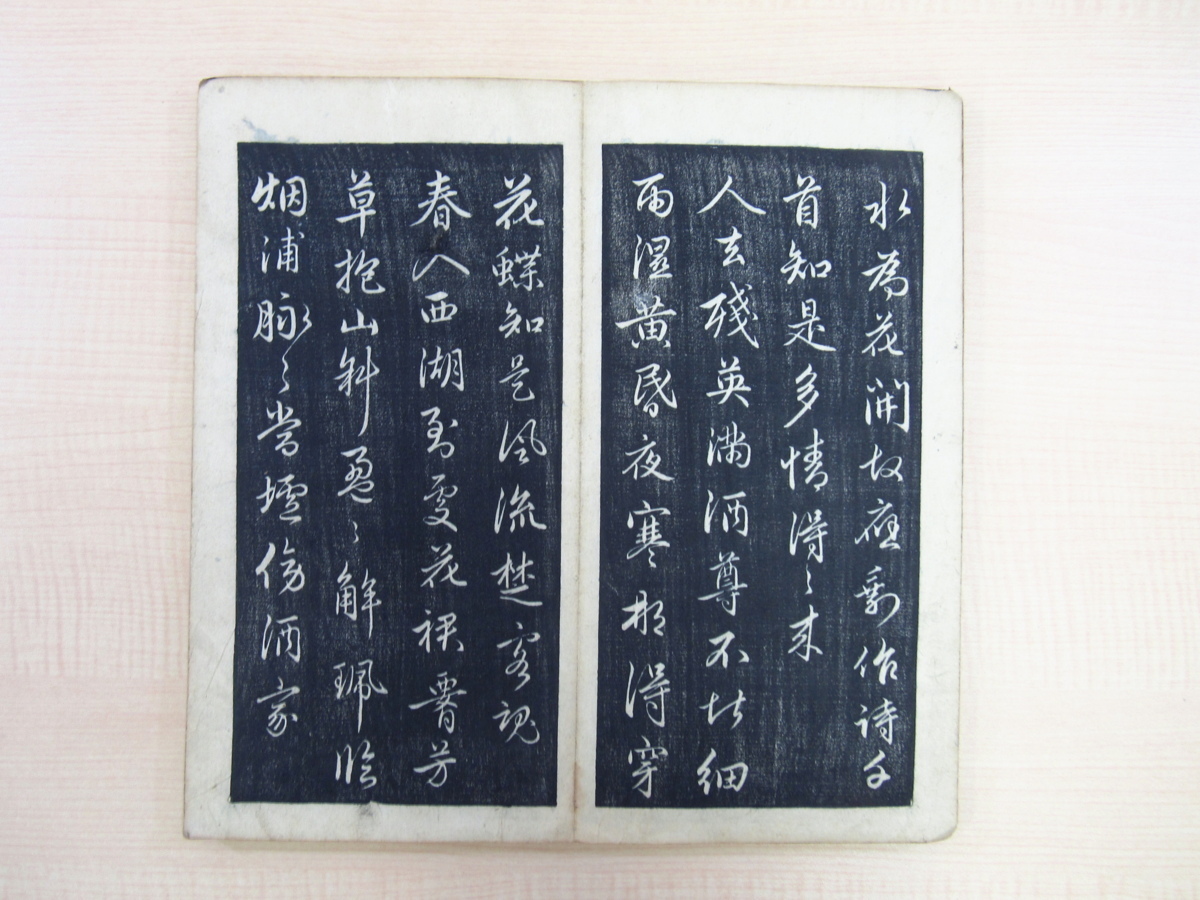 水為花開故應剩作詩千
首知是多情得〻来
人去殘英滿酒尊不堪細
雨濕黃昏夜寒那得穿
花蝶知是風流楚客魂
春入西湖到處花裙腰芳
草抱山斜盈〻解珮臨
烟浦脉〻當壚傍酒家